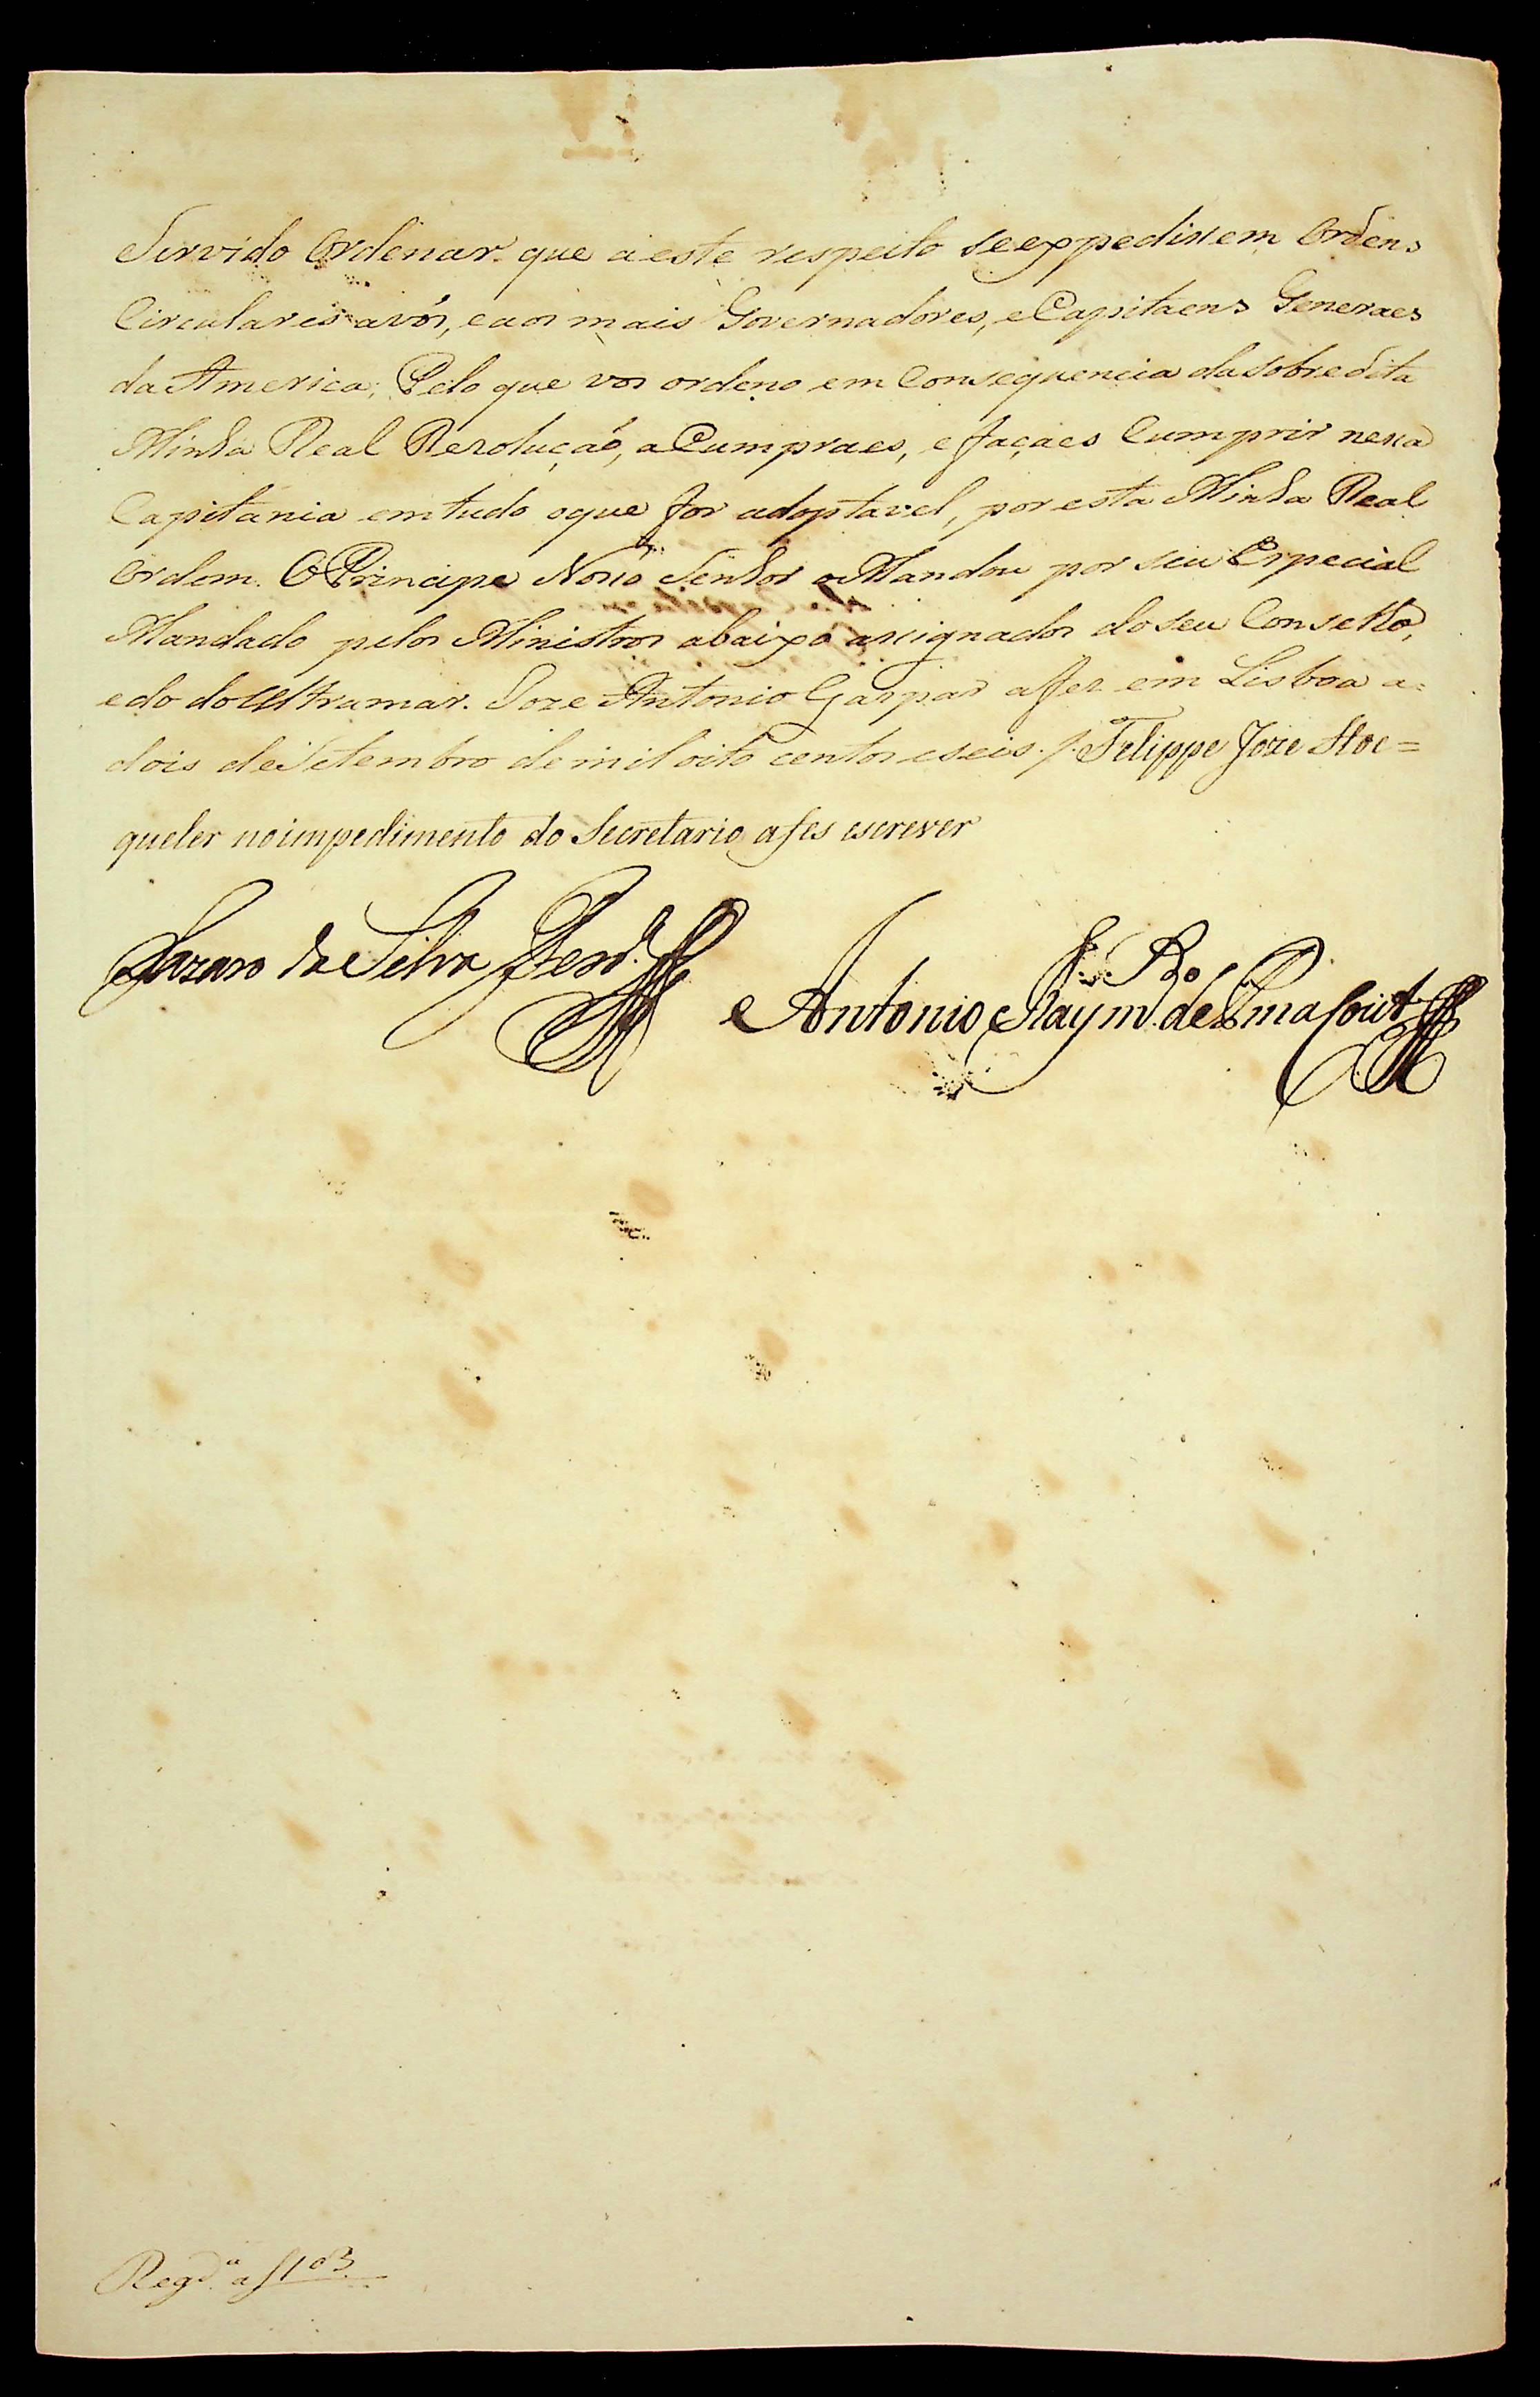 Servido Ordenar que a este respeito se expedissem Ordens
Circulares a vós, e aos mais Governadores, e Capitaens Generaes
da America; Pelo que vos ordeno em Consequencia da sobredita
Minha Real Rezolução, a Cumpraes, e façaes Cumprir nessa
Capitania em tudo o que for adoptavel, por esta Minha Real
Ordem. O Principe Nosso Senhor o Mandou por seu Especial
Mandado pelos Ministros abaixo assignados do seu Conselho,
e do do Ultramar. Joze Antonio Gaspar a fez em Lisboa a
dois de Setembro de mil oito centos e seis. /. Felippe Joze Stoc=
queler no impedimento do Secretario a fes escrever
Lazaro da Silva Ferr.ª
Antonio Raym. de Pina Cout.º
Regd.ª a f 103